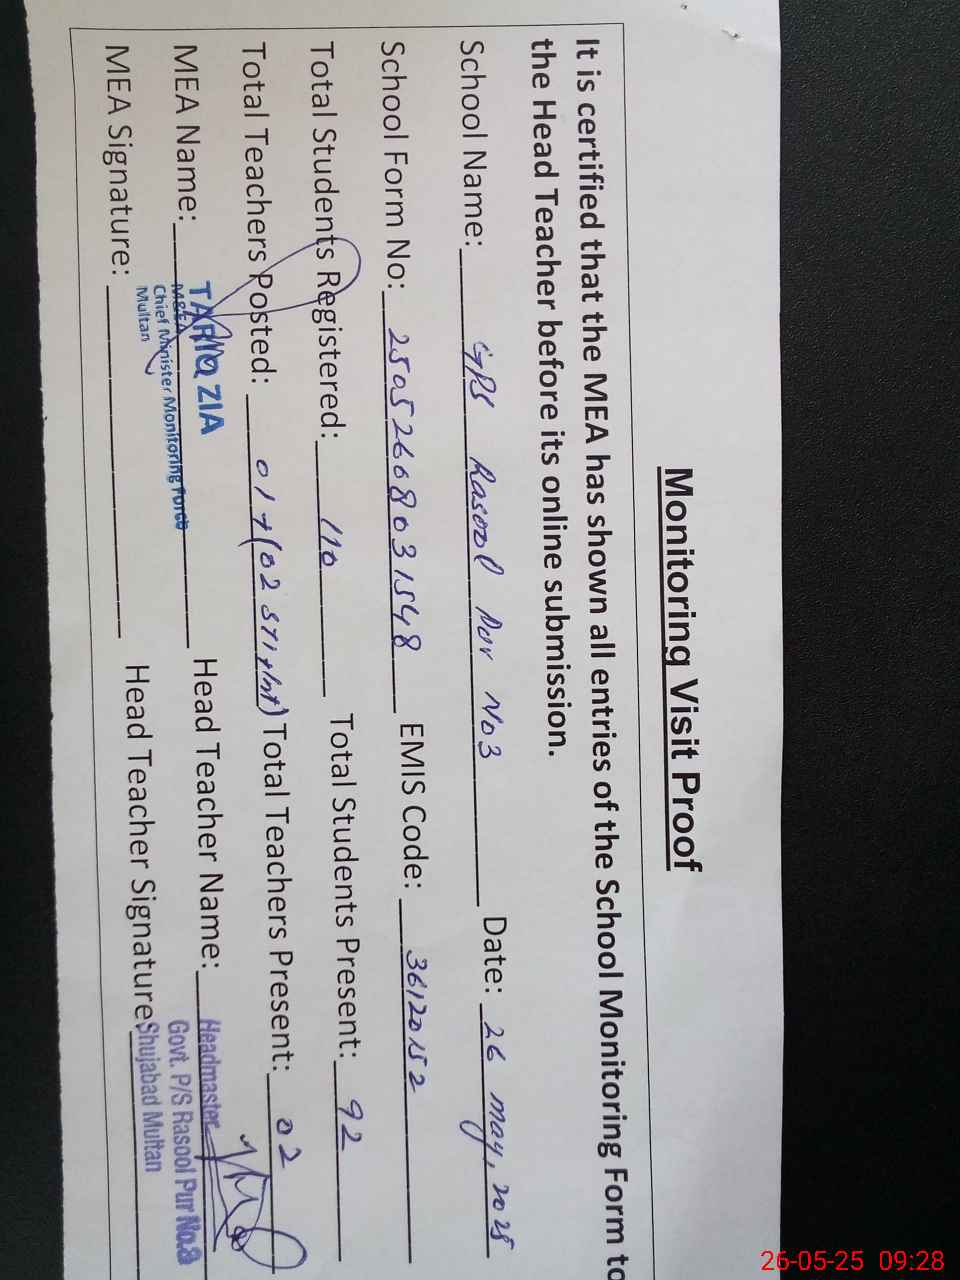 Monitoring Visit Proof
It is certified that the MEA has shown all entries of the School Monitoring Form to
the Head Teacher before its online submission.
School Name: GPS Rasool Pur No3 Date: 26 May, 2025
School Form No: 25052668031548 EMIS Code: 36120152
Total Students Registered: 110 Total Students Present: 92
Total Teachers Posted: 01+(02 STI+Int) Total Teachers Present: 02
MEA Name: TARIQ ZIA Head Teacher Name: Headmaster
M&EA
Chief Minister Monitoring Force
Multan
Govt. P/S Rasool Pur No.3
MEA Signature: Head Teacher Signature: Shujabad Multan
26-05-25 09:28